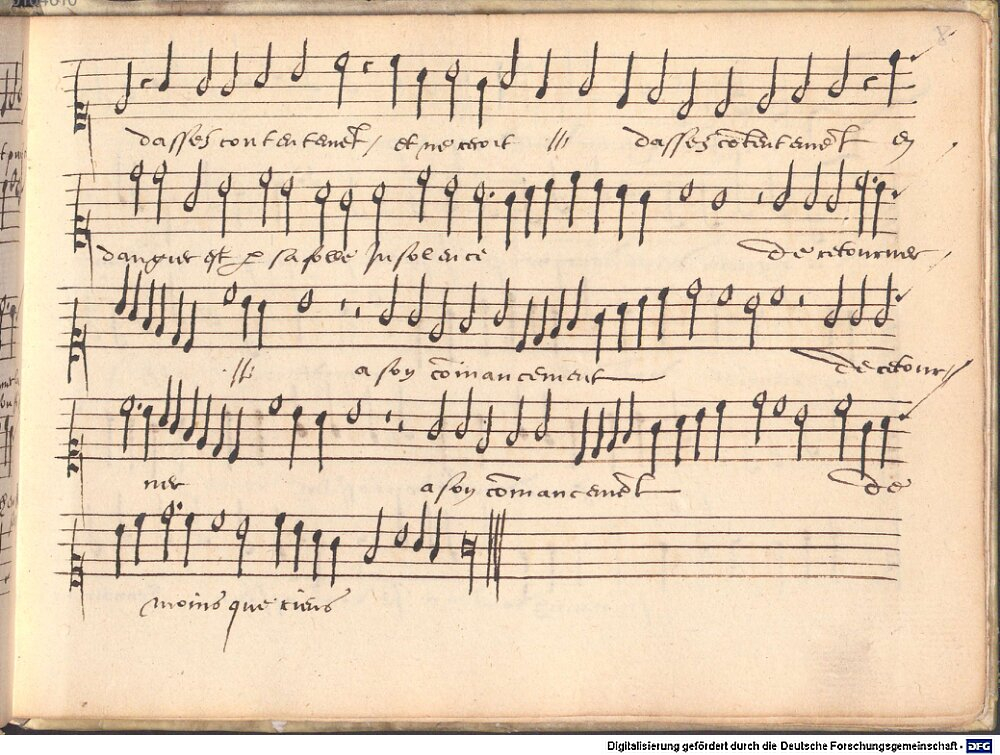 8
dassez contentemēt / et ne recoit // dassez cōtentemēt en
dangier est p sa folle Insolence de retourner
// a son cōmancement de retour
ner a son cōmancemēt de
moins que riens
Digitalisierung gefördert durch die Deutsche Forschungsgemeinschaft - DFG